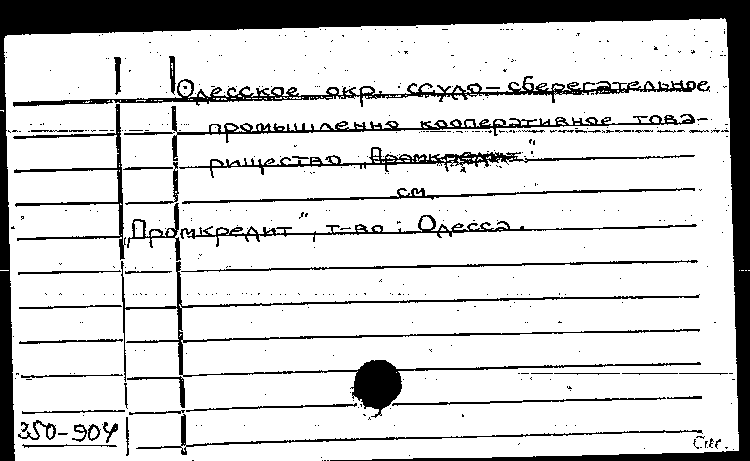 Одесское окр. ссудо-сберегательное
промышленно кооперативное това-
рищество „Промкредит"
см.
„Промкредит", т-во : Одесса.
350-904